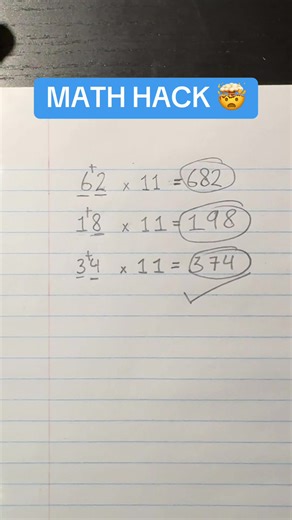 MATH HACK 🤯
6+2 x 11 = 682
1+8 x 11 = 198
3+4 x 11 = 374